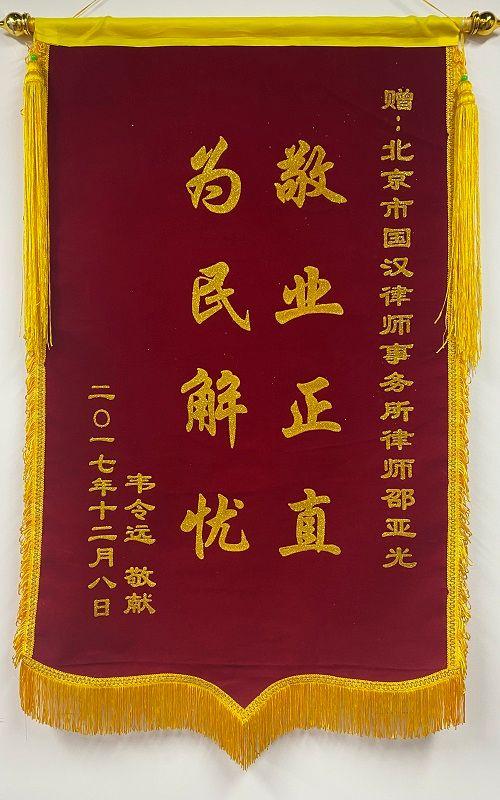 赠：北京市国汉律师事务所律师邵亚光
敬业正直
为民解忧
韦令远 敬献
二〇一七年十二月八日